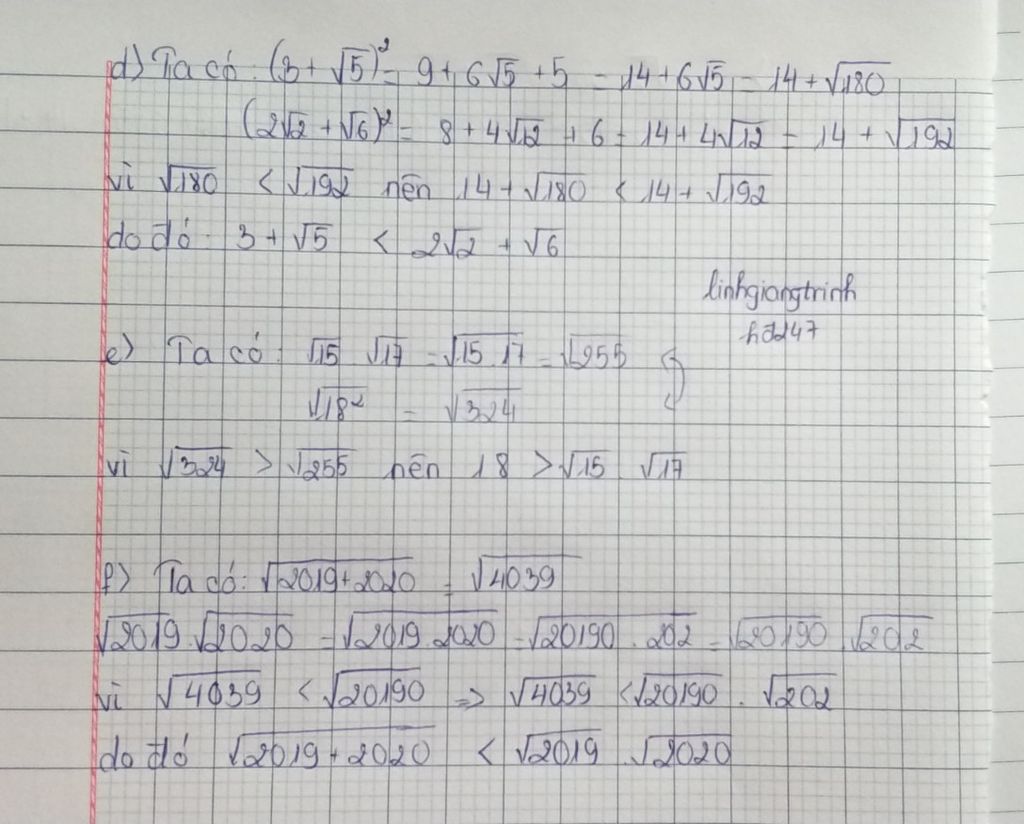 d) Ta có: (3 + √5)² = 9 + 6√5 + 5 = 14 + 6√5 = 14 + √180
(2√2 + √6)² = 8 + 4√12 + 6 = 14 + 4√12 = 14 + √192
vì √180 < √192 nên 14 + √180 < 14 + √192
do đó: 3 + √5 < 2√2 + √6
linhgiangtrinh
e) Ta có: √15 . √17 = √15.17 = √255
√18² = √324
vì √324 > √255 nên 18 > √15 . √17
f) Ta có: √2019+2020 = √4039
√2019 . √2020 = √2019.2020 = √20190 . 202 = √20190 . √202
vì √4039 < √20190 => √4039 < √20190 . √202
do đó √2019+2020 < √2019 . √2020